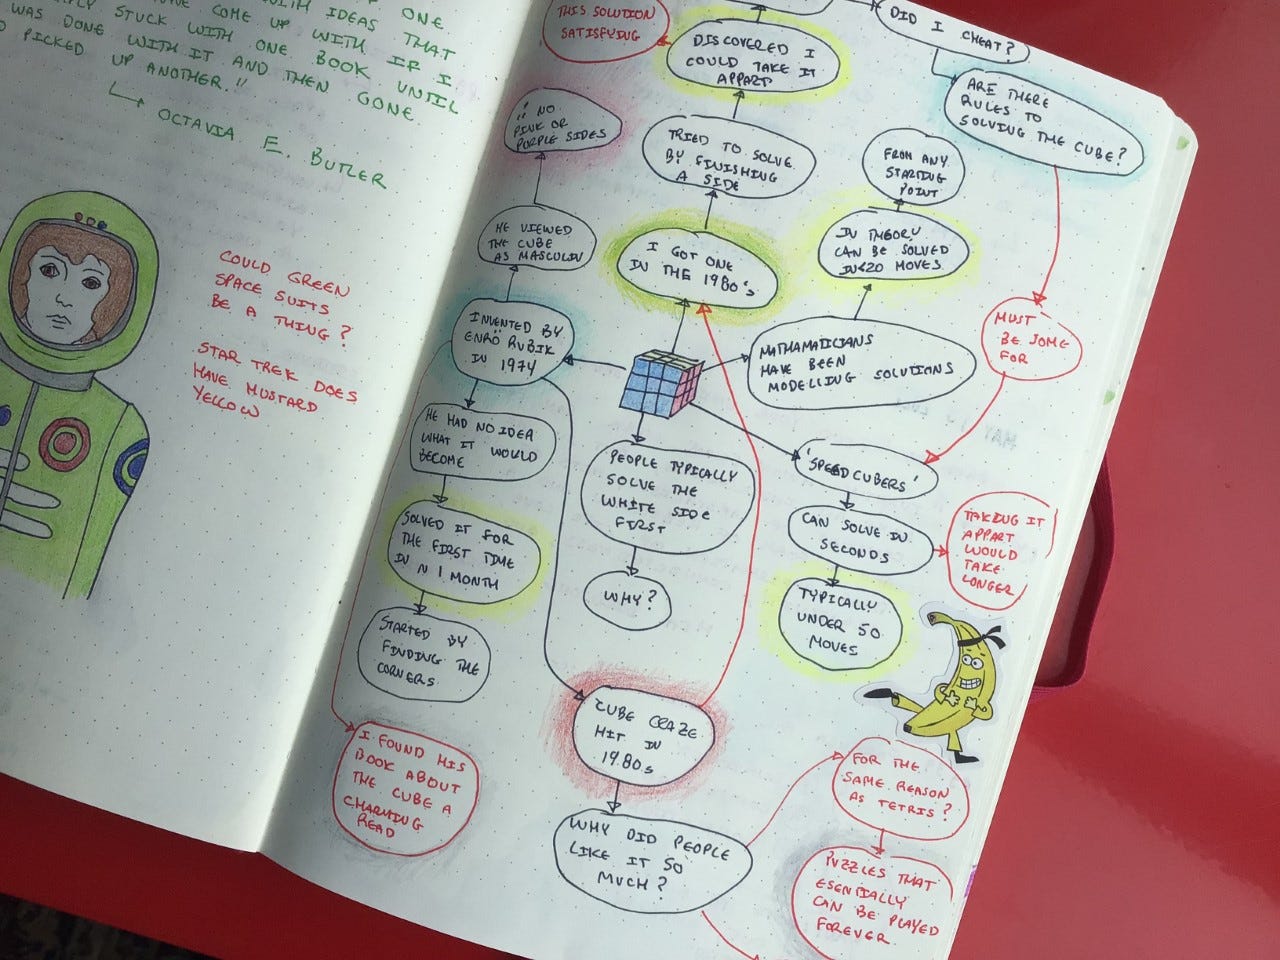 ONE
WITH IDEAS THAT
COME UP WITH IF I
STUCK WITH ONE BOOK UNTIL
WAS DONE WITH IT AND THEN GONE
PICKED UP ANOTHER."
OCTAVIA E. BUTLER
COULD GREEN
SPACE SUITS
BE A THING?
STAR TREK DOES
HAVE MUSTARD
YELLOW
THIS SOLUTION
SATISFYING
DISCOVERED I
COULD TAKE IT
APPART
DID I CHEAT?
ARE THERE
RULES TO
SOLVING THE CUBE?
NO
PINK OR
PURPLE SIDES
TRIED TO SOLVE
BY FINISHING
A SIDE
FROM ANY
STARTING
POINT
HE VIEWED
THE CUBE
AS MASCULIN
I GOT ONE
IN THE 1980's
IN THEORY
CAN BE SOLVED
IN <20 MOVES
MUST
BE SOME
FOR
INVENTED BY
ENRÖ RUBIK
IN 1974
MATHAMATICIANS
HAVE BEEN
MODELLING SOLUTIONS
HE HAD NO IDEA
WHAT IT WOULD
BECOME
PEOPLE TYPICALLY
SOLVE THE
WHITE SIDE
FIRST
'SPEEDCUBERS'
SOLVED IT FOR
THE FIRST TIME
IN ~ 1 MONTH
CAN SOLVE IN
SECONDS
TAKING IT
APPART
WOULD
TAKE
LONGER
WHY?
TYPICALLY
UNDER 50
MOVES
STARTED BY
FINDING THE
CORNERS
CUBE CRAZE
HIT IN
1980s
I FOUND HIS
BOOK ABOUT
THE CUBE A
CHARMING
READ
FOR THE
SAME REASON
AS TETRIS?
WHY DID PEOPLE
LIKE IT SO
MUCH?
PUZZLES THAT
ESENTIALLY
CAN BE PLAYED
FOREVER